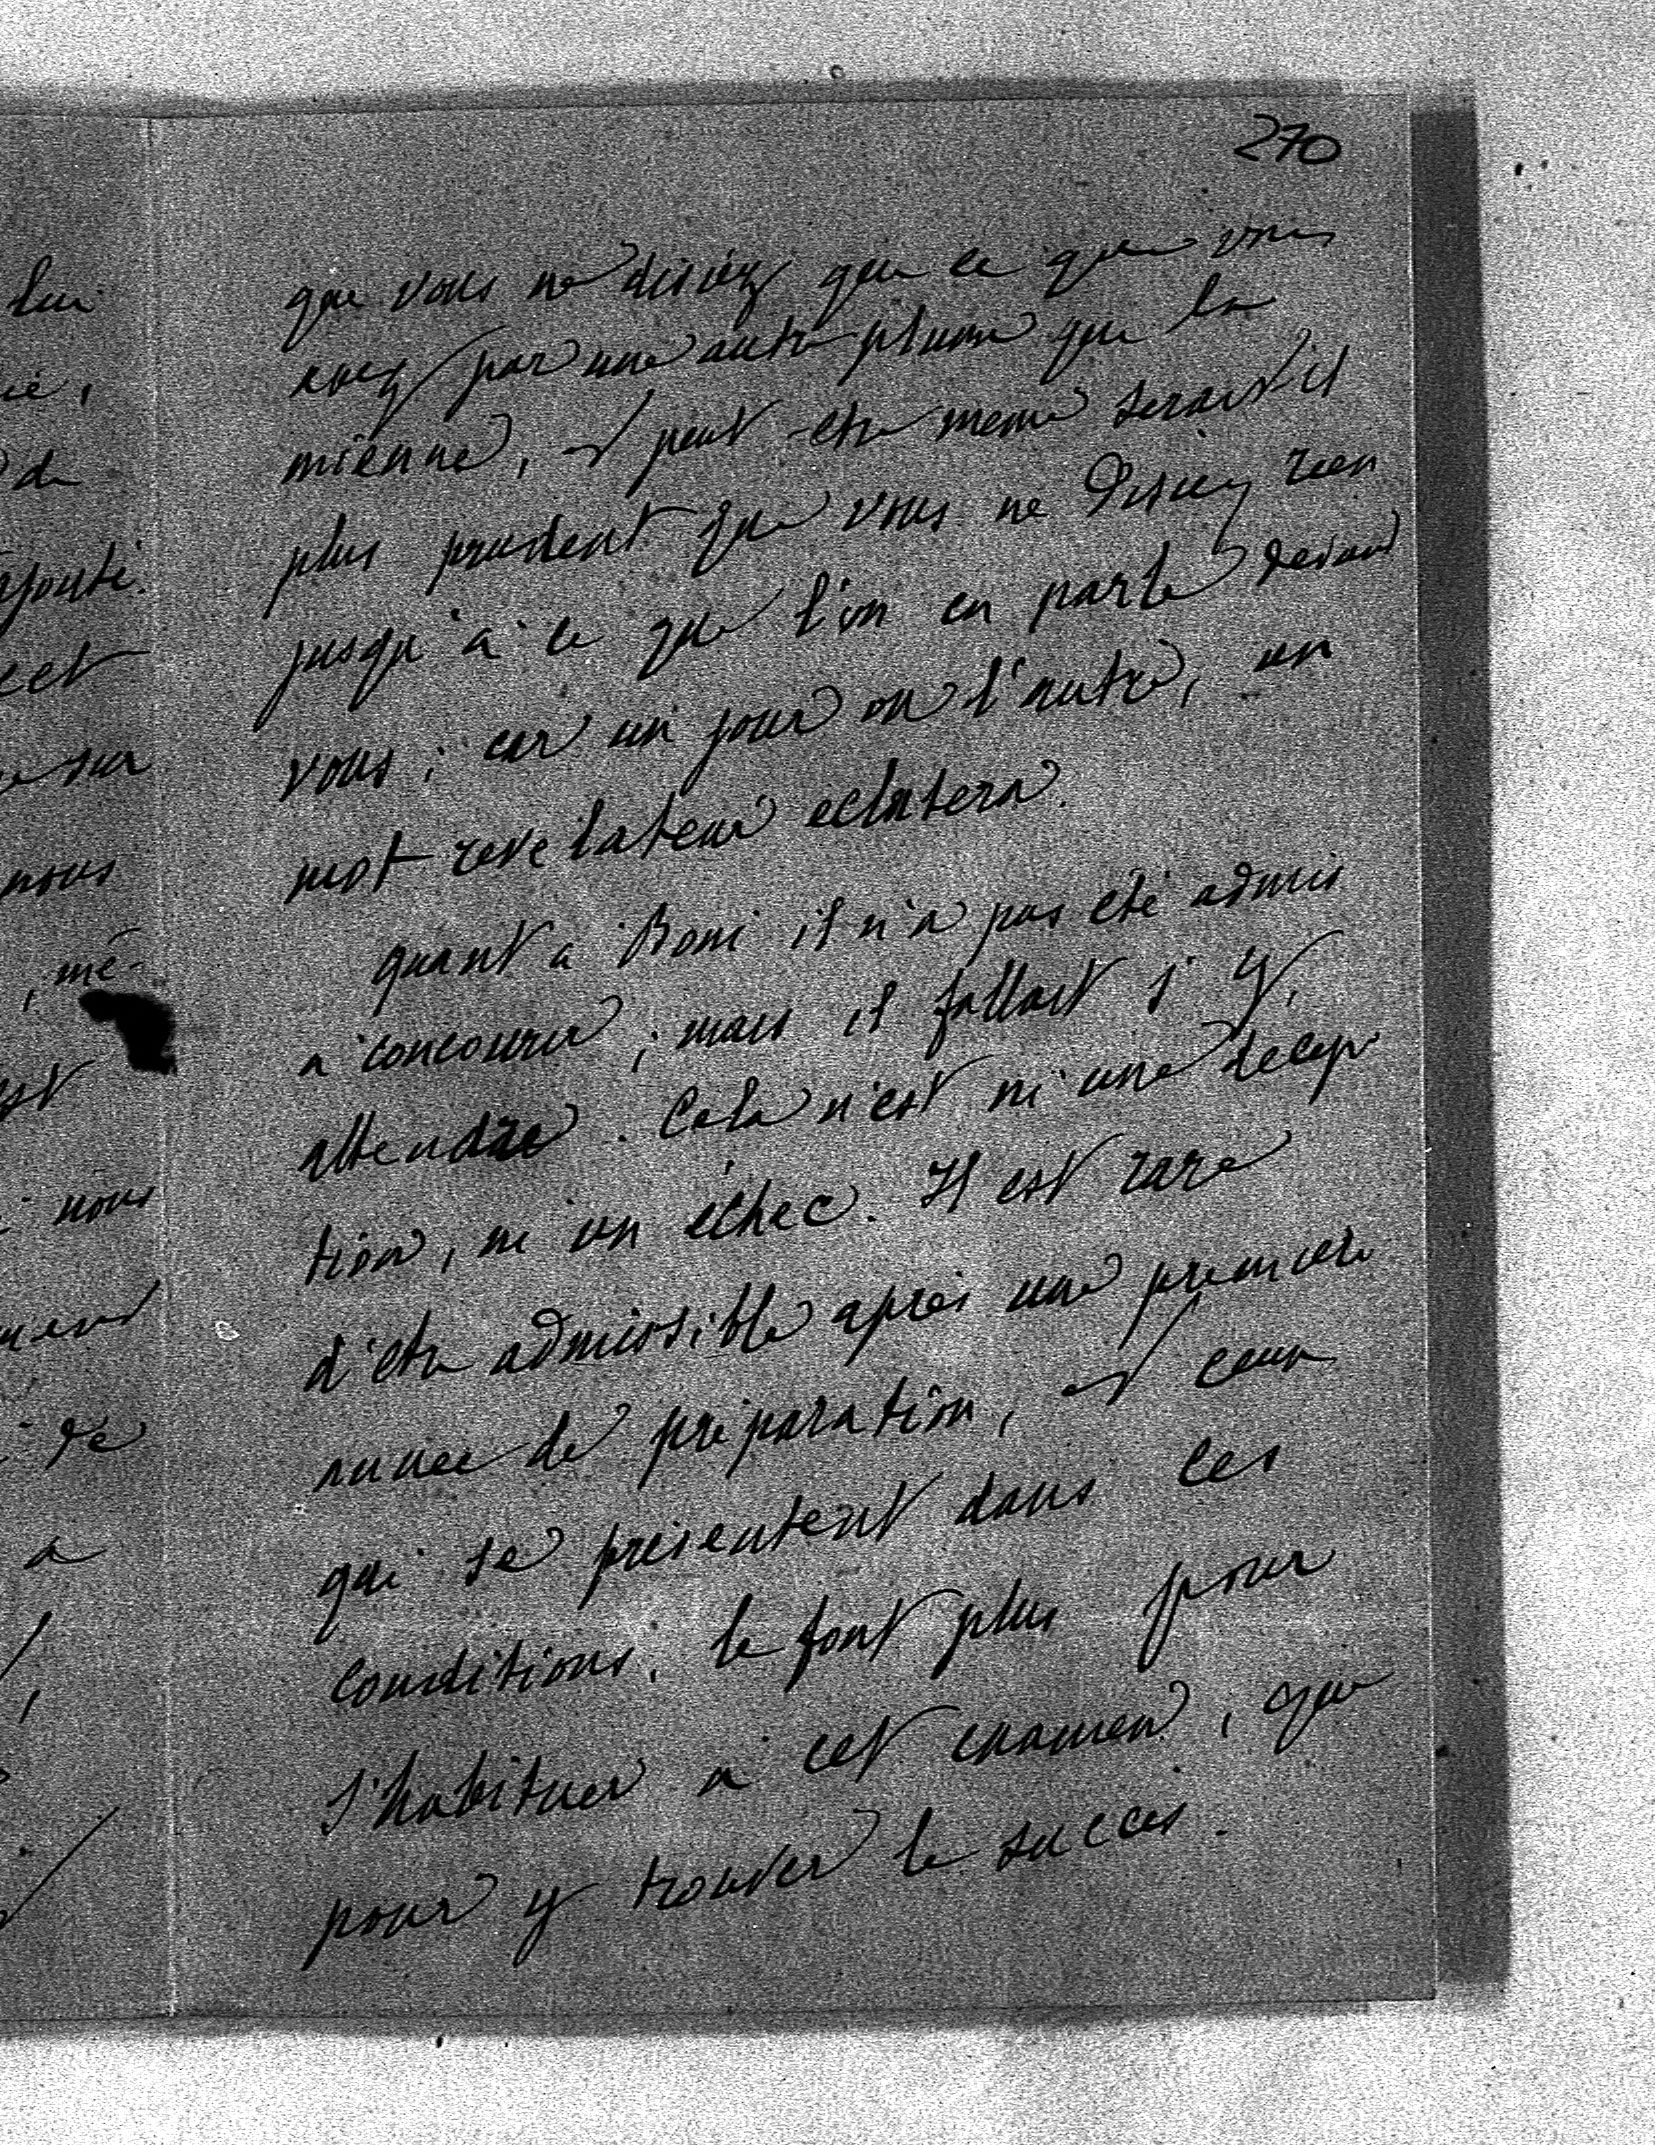 270
que vous ne disiez que ce que vous
avez par une autre plume que la
mienne, et peut-etre meme serait-il
plus prudent que vous ne disiez rien
jusqu'à ce que l'on en parle devant
vous ; car un jour ou l'autre, un
mot revelateur eclatera.
quant a Boni il n'a pas été admis
a concourir ; mais il fallait s'y
attendre. Cela n'est ni une décep-
tion, ni un échec. Il est rare
d'etre admissible après une premiere
annee de préparation, et ceux
qui se présentent dans ces
conditions, le font plus pour
s'habituer a cet examen, que
pour y trouver le succès.
lui
ié,
de
ajouté.
cet
sur
nous
, mé-
est
nous
de
a